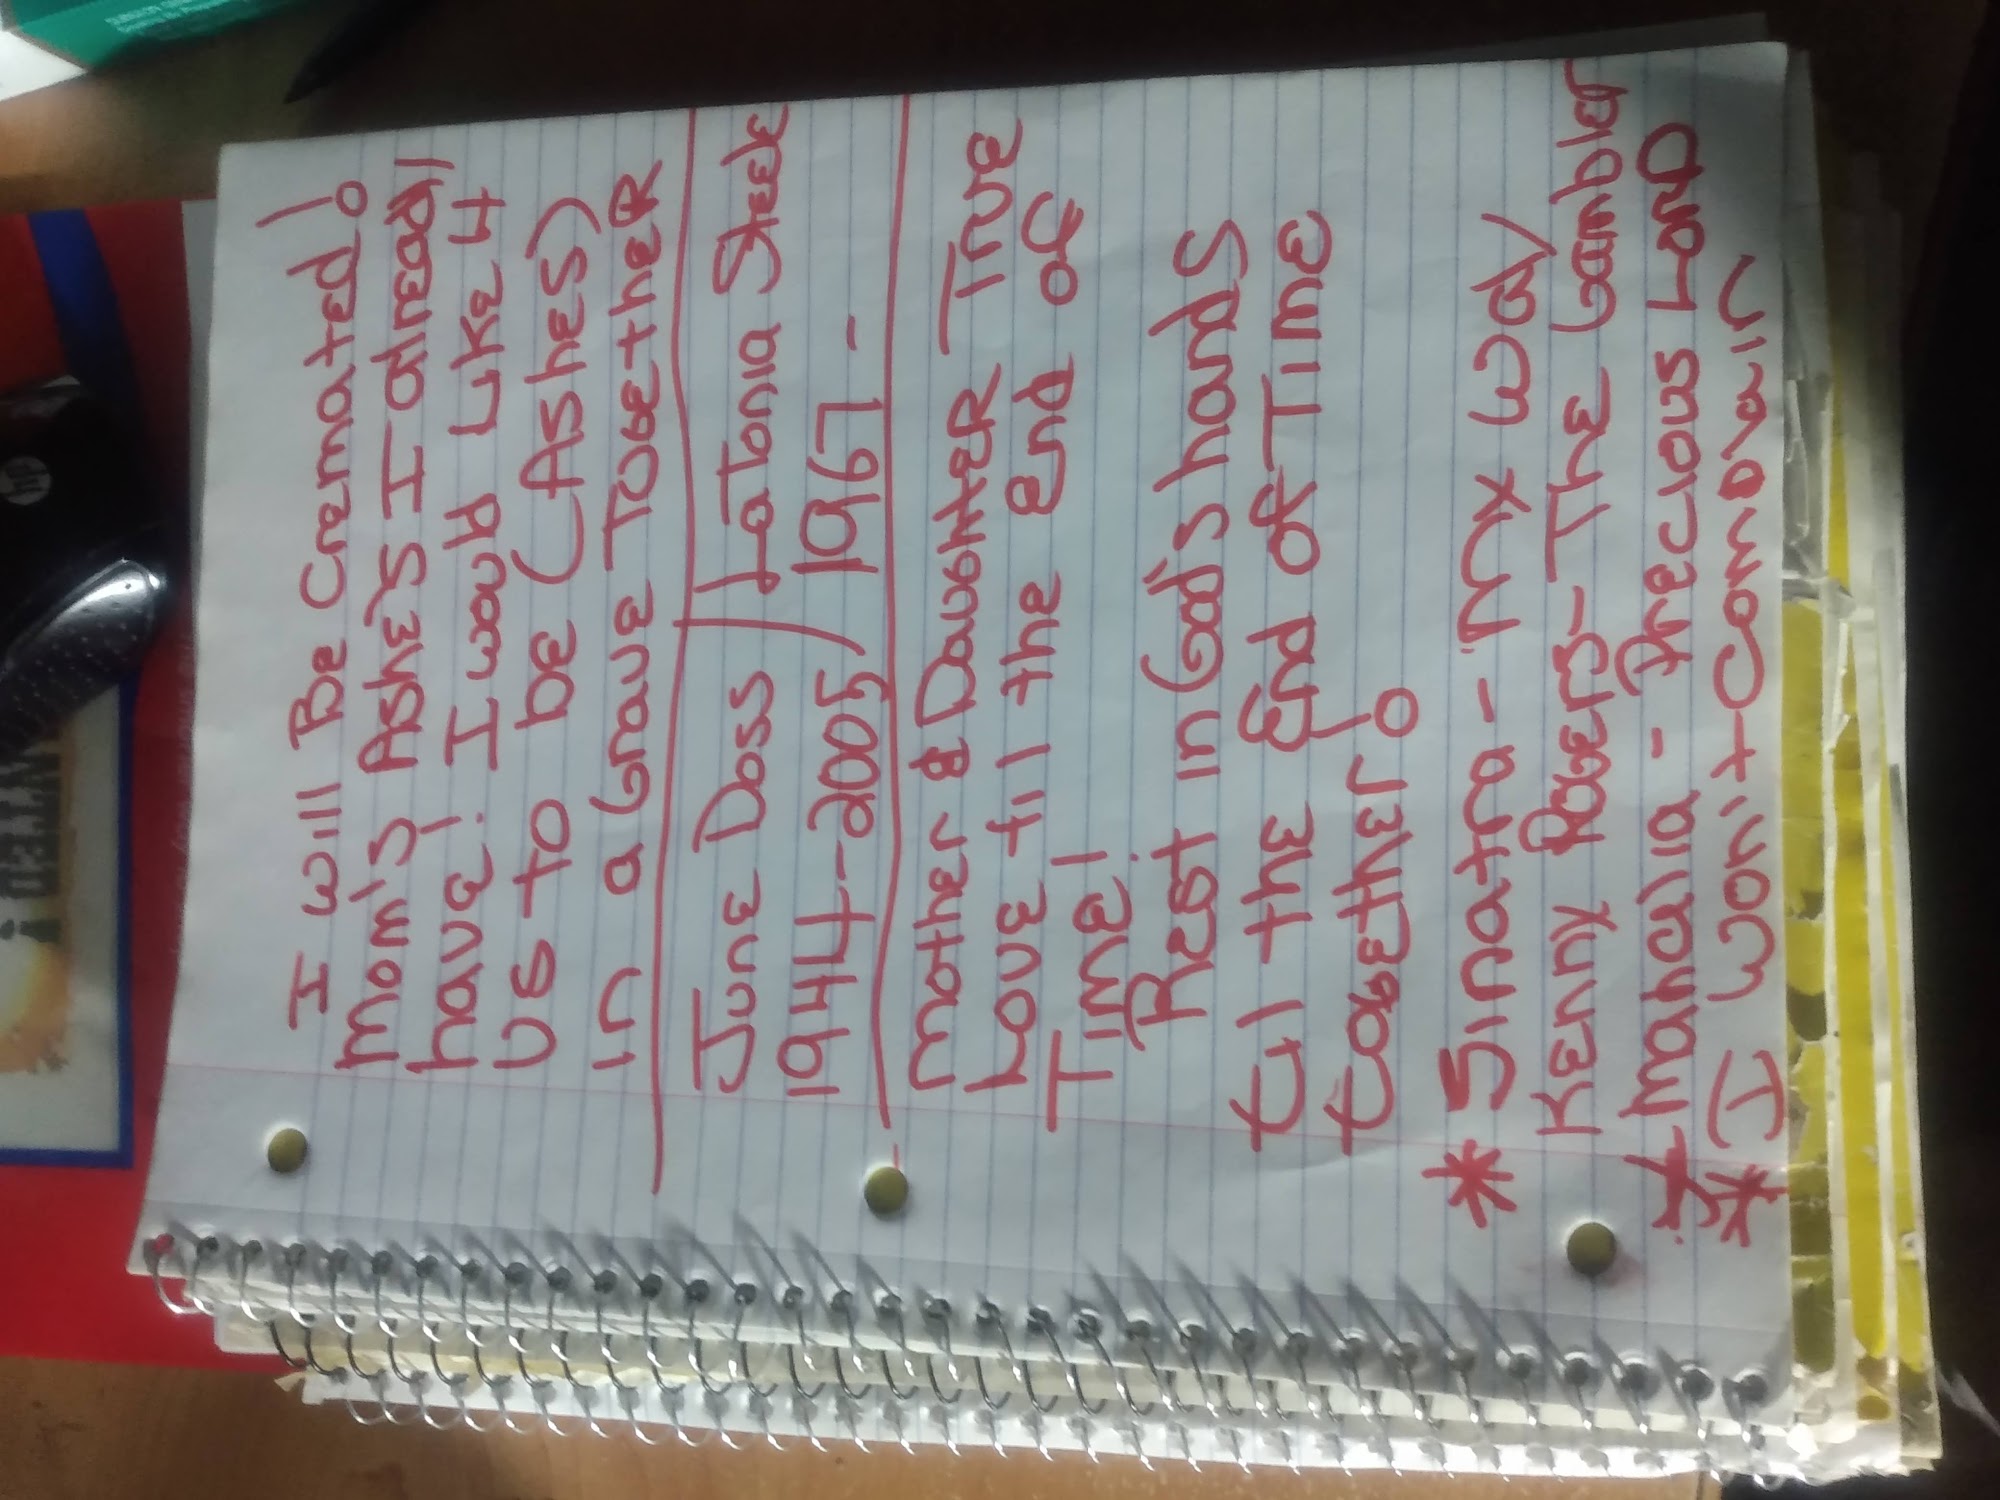 I will Be Cremated!
Mom's Ashes I already
have! I would Like 4
US to be (Ashes)
in a Grave Together
June Doss / LaTonia Steele
1944-2005 / 1967 -
Mother & Daughter True
Love till the End of
Time!
Rest in God's hands
til the End of Time
together!
* Sinatra - My way
Kenny Rogers - The Gambler
* Mahalia - Precious Lord
* I won't complain